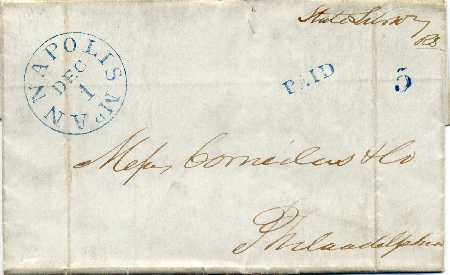 State Library
ANNAPOLIS Md
DEC
1
PAID
5
Mess Cornelius & Co
Philadelphia